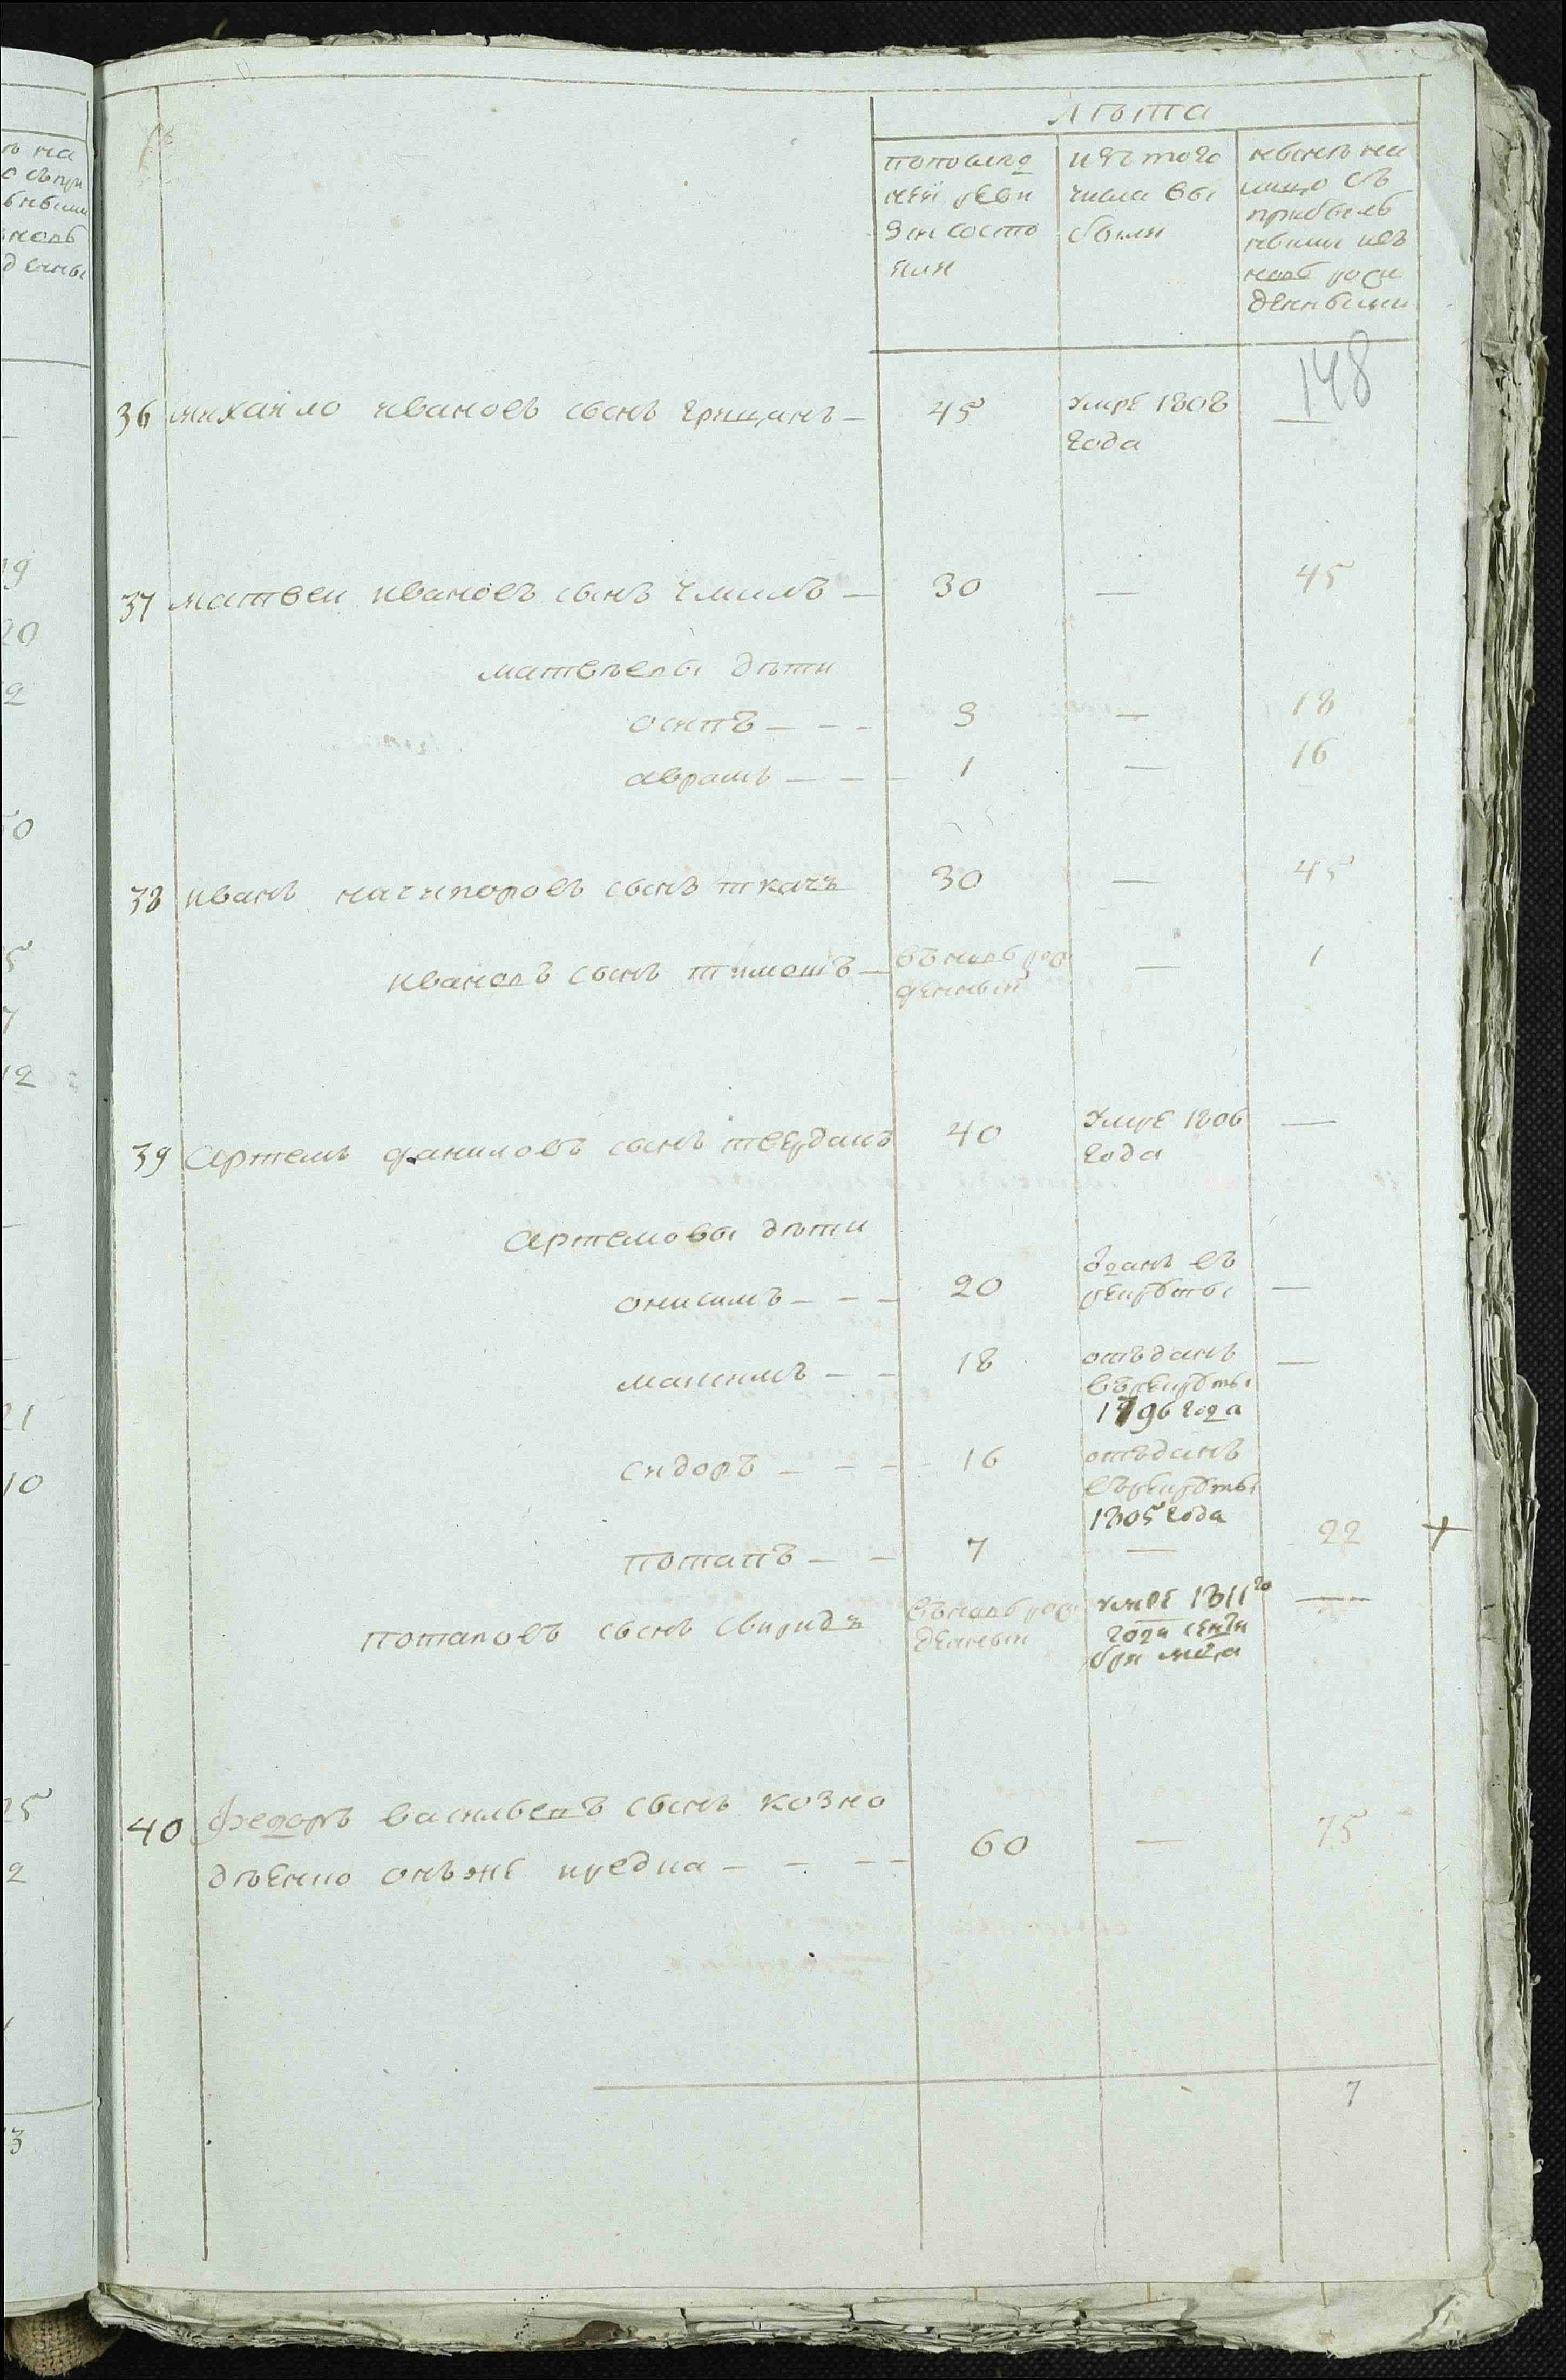 Лѣта
попослѣ
ней реви
зіи состо
яли
изъ того
числа вы
были
нынѣ на
лицо съ
прибыль
ными и въ
новь рож
денными
148
36 михайло ивановъ сынъ грицанъ — 45 умре 1808 —
года
37 матвеи ивановъ сынъ — 30 — 45
матвѣевы дѣти
осипъ — — — 3 — 18
аврамъ — — — 1 — 16
38 иванъ ничипоровъ сынъ ткачъ 30 — 45
ивановъ сынъ тимошъ — въновь рож — 1
денный
39 Артемъ даниловъ сынъ 40 умре 1806 —
года
Артемовы дѣти
онисимъ — — — 20 зданъ въ —
рекруты
максимъ — — 18 отъданъ —
въ рекруты
1796 года
сидоръ — — — 16 отъданъ
въ рекруты
1805 года
потапъ — — 7 — 22 +
потаповъ сынъ свиридъ въновь рож умре 1811го —
денный года сентя
бря мѣца
40 Федоръ васильевъ сынъ козно
дѣенко онъже — — — — 60 — 75
7